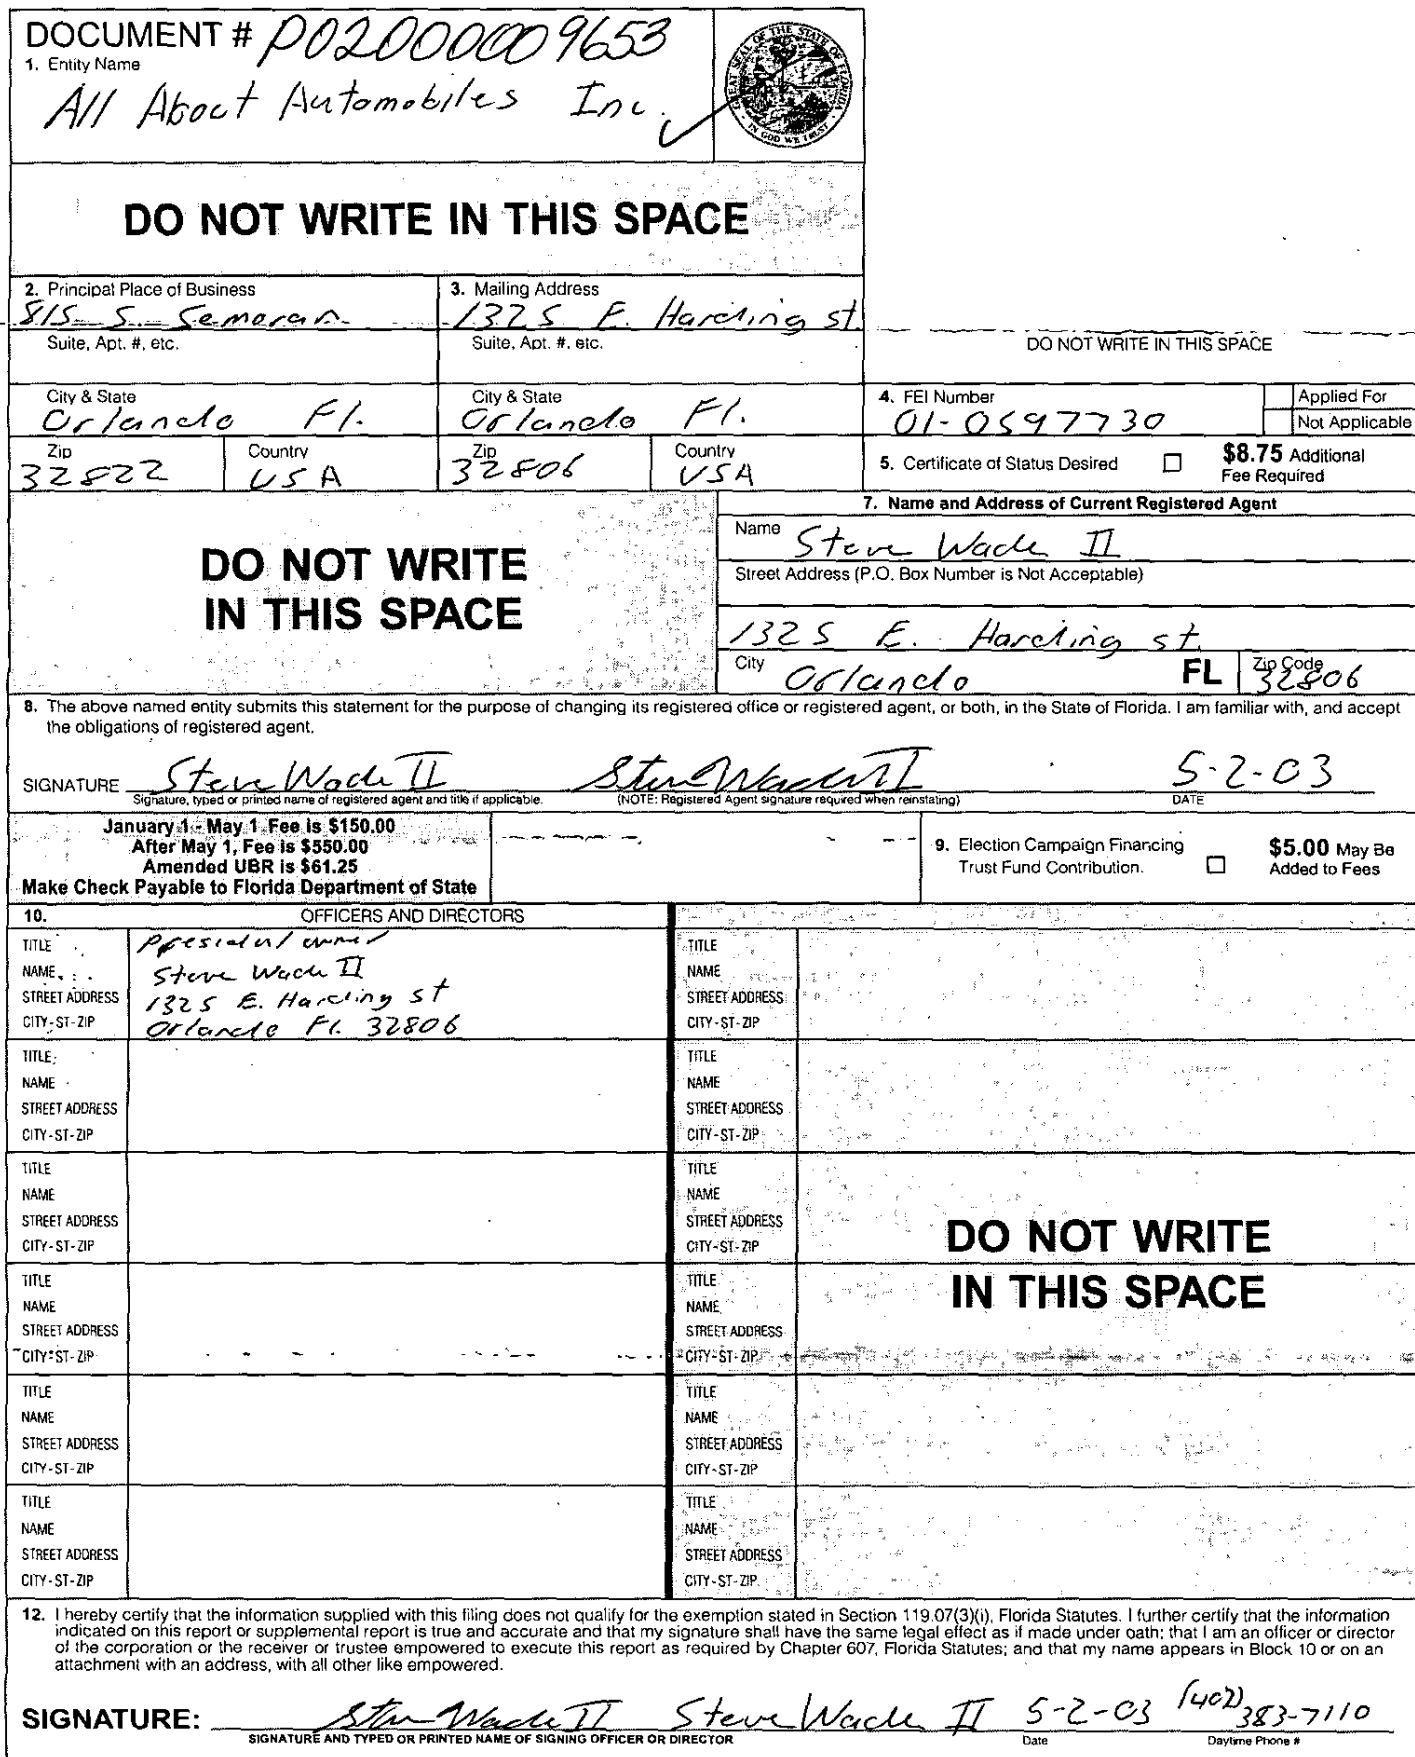 DOCUMENT # P02000009653
1. Entity Name
All About Automobiles Inc.
GREAT SEAL OF THE STATE OF FLORIDA
IN GOD WE TRUST
DO NOT WRITE IN THIS SPACE
2. Principal Place of Business
815 S. Semoran
Suite, Apt. #, etc.
3. Mailing Address
1325 E. Harding st
Suite, Apt. #, etc.
DO NOT WRITE IN THIS SPACE
City & State
Orlando Fl.
City & State
Orlando Fl.
4. FEI Number
01-0597730
Applied For
Not Applicable
Zip
32822
Country
USA
Zip
32806
Country
USA
5. Certificate of Status Desired
$8.75 Additional
Fee Required
DO NOT WRITE
IN THIS SPACE
7. Name and Address of Current Registered Agent
Name Steve Wade II
Street Address (P.O. Box Number is Not Acceptable)
1325 E. Harding st.
City Orlando FL Zip Code 32806
8. The above named entity submits this statement for the purpose of changing its registered office or registered agent, or both, in the State of Florida. I am familiar with, and accept
the obligations of registered agent.
SIGNATURE Steve Wade II Steve Wade II 5-2-03
Signature, typed or printed name of registered agent and title if applicable. (NOTE: Registered Agent signature required when reinstating) DATE
January 1 - May 1 Fee is $150.00
After May 1, Fee is $550.00
Amended UBR is $61.25
Make Check Payable to Florida Department of State
9. Election Campaign Financing
Trust Fund Contribution.
$5.00 May Be
Added to Fees
10. OFFICERS AND DIRECTORS
TITLE President/owner
NAME Steve Wade II
STREET ADDRESS 1325 E. Harding st
CITY-ST-ZIP Orlando Fl. 32806
TITLE
NAME
STREET ADDRESS
CITY-ST-ZIP
TITLE
NAME
STREET ADDRESS
CITY-ST-ZIP
TITLE
NAME
STREET ADDRESS
CITY-ST-ZIP
TITLE
NAME
STREET ADDRESS
CITY-ST-ZIP
TITLE
NAME
STREET ADDRESS
CITY-ST-ZIP
TITLE
NAME
STREET ADDRESS
CITY-ST-ZIP
TITLE
NAME
STREET ADDRESS
CITY-ST-ZIP
TITLE
NAME
STREET ADDRESS
CITY-ST-ZIP
TITLE
NAME
STREET ADDRESS
CITY-ST-ZIP
TITLE
NAME
STREET ADDRESS
CITY-ST-ZIP
TITLE
NAME
STREET ADDRESS
CITY-ST-ZIP
DO NOT WRITE
IN THIS SPACE
12. I hereby certify that the information supplied with this filing does not qualify for the exemption stated in Section 119.07(3)(i), Florida Statutes. I further certify that the information
indicated on this report or supplemental report is true and accurate and that my signature shall have the same legal effect as if made under oath; that I am an officer or director
of the corporation or the receiver or trustee empowered to execute this report as required by Chapter 607, Florida Statutes; and that my name appears in Block 10 or on an
attachment with an address, with all other like empowered.
SIGNATURE: Steve Wade II Steve Wade II 5-2-03 (402) 383-7110
SIGNATURE AND TYPED OR PRINTED NAME OF SIGNING OFFICER OR DIRECTOR Date Daytime Phone #